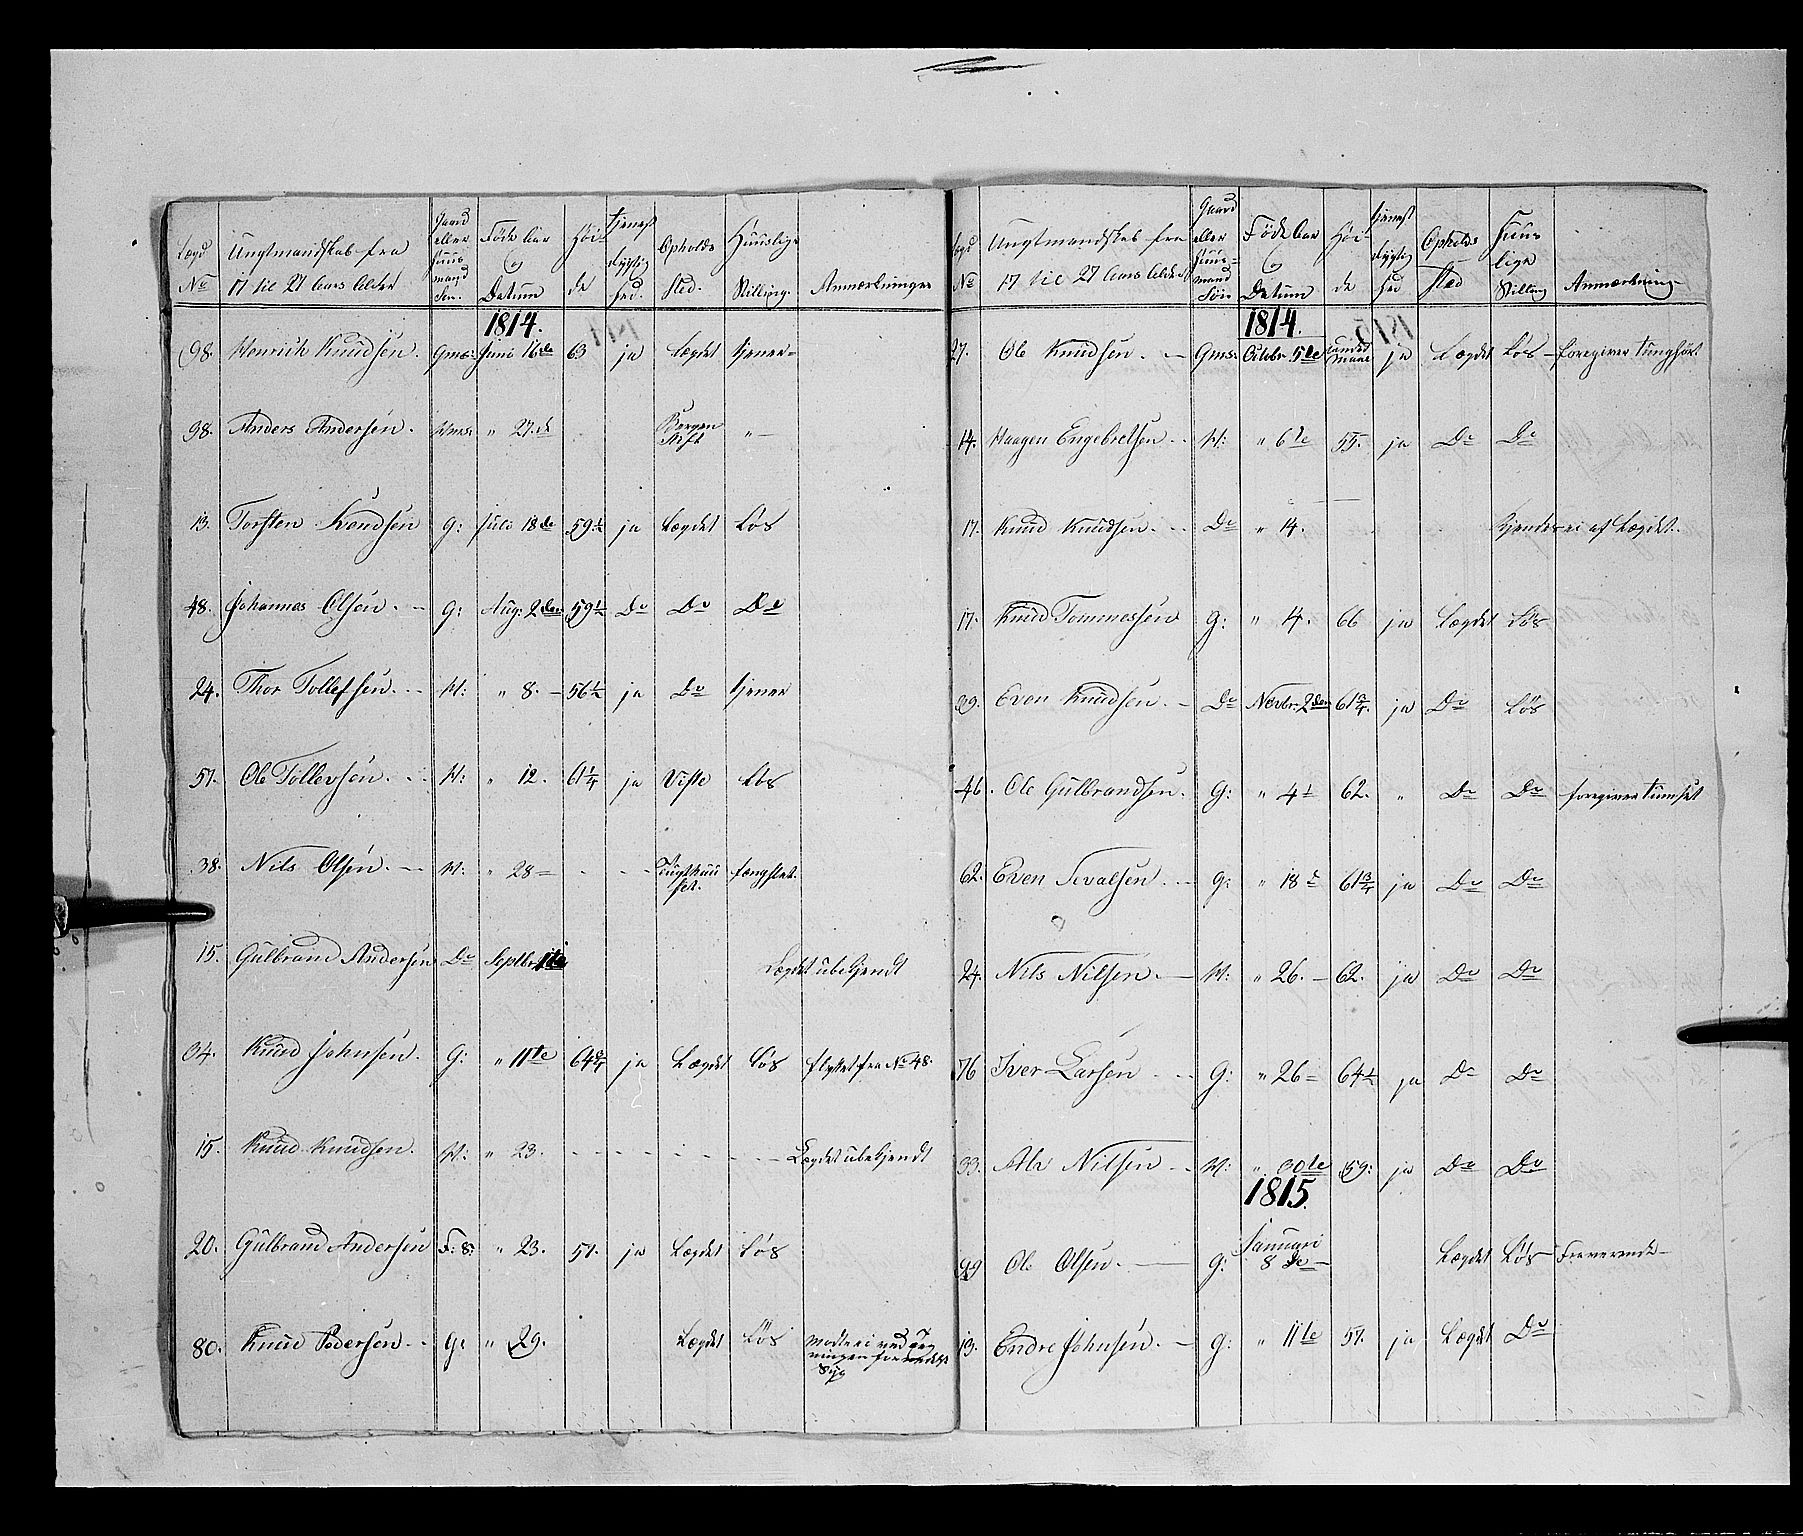 Lægd No | Ungtmandskab fra 17 til 27 Aars Alder | Gaard eller Huusmands Søn. | Føde Aar og Datum | Høide | tjenestdygtighed. | Opholdssted. | Huuslige Stilling. | Anmærkninger
1814.
98. Henrich Knudsen. Gms: Juni 16de 63 ja Lægdet tjener
98. Anders Andersen. Hms: " 27.de Bergen Stift " —
13. Torsten Knudsen G: Juli 18de 59½ ja Lægdet Løs
48. Johannes Olsen. G: Aug: 2den 59½ Do Do Do
24. Thor Tollefsen. H: " 8. 56½ ja Do tjener
57. Ole Tollevsen. H: " 12. 61¼ ja Løs
38. Nils Olsen. H: " 28 Tugthuuset. fængslet.
15. Gulbrand Andersen Do Septbr 1te Lægdet ubekjendt
34. Knud Johnsen. G: " 11te 64¾ ja Lægdet Løs flyttet fra No 48.
15. Knud Knudsen. H: " 23. Lægdet ubekjendt
20. Gulbrand Andersen F: S: " 23. 57. ja Lægdet Løs
80. Knud Pedersen. G: " 29. Lægdet Løs Syg
Lægd No | Ungtmandskab fra 17 til 27 Aars Alder | Gaard eller Huusmands Søn | Føde Aar og Datum | Høide | tjenestdygtighed | Opholdssted | Huuslige Stilling | Anmærkning
1814.
27. Ole Knudsen. Gms: Octbr. 5te under Maal ja Lægdet Løs foregiver tunghørt
14. Haagen Engebretsen. H: " 6te 55. ja Do Do
17. Knud Knudsen. Do " 14. kjendes ei af Lægdet.
17. Knud Tommessen G: " 14. 66 ja Lægdet Løs
29. Even Knudsen. Do Novbr. 2den 61¾. ja Do Løs
46. Ole Gulbrandsen. G: " 4de 62. " Do Do foregiver
62. Even Sevalsen. G: " 18de 61¾ ja Do Do
24. Nils Nilsen. H: " 26. 62. ja Do Do
76 Iver Larsen G: " 26 64½ ja Do Do
33. Atle Nilsen H: " 30te 59: ja Do Do
1815.
99 Ole Olsen. G: Januari 8de Lægdet Løs Fraværende
13. Endre Johnsen. G: " 11te 57. ja Lægdet Do